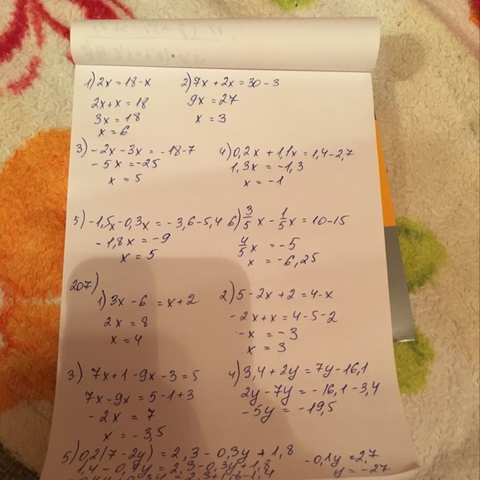 1) 2x = 18 - x
2x + x = 18
3x = 18
x = 6
2) 7x + 2x = 30 - 3
9x = 27
x = 3
3) -2x - 3x = -18 - 7
-5x = -25
x = 5
4) 0,2x + 1,1x = 1,4 - 2,7
1,3x = -1,3
x = -1
5) -1,5x - 0,3x = -3,6 - 5,4
-1,8x = -9
x = 5
6) 3/5 x - 1/5 x = 10 - 15
4/5 x = -5
x = -6,25
207)
1) 3x - 6 = x + 2
2x = 8
x = 4
2) 5 - 2x + 2 = 4 - x
-2x + x = 4 - 5 - 2
-x = -3
x = 3
3) 7x + 1 - 9x - 3 = 5
7x - 9x = 5 - 1 + 3
-2x = 7
x = -3,5
4) 3,4 + 2y = 7y - 16,1
2y - 7y = -16,1 - 3,4
-5y = -19,5
5) 0,2(7 - 2y) = 2,3 - 0,3y + 1,8
1,4 - 0,4y = 2,3 - 0,3y + 1,8
-0,1y = 2,7
y = -27